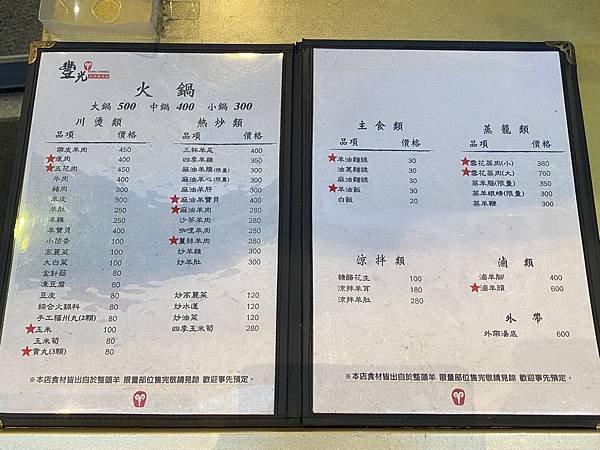 豐光
火鍋
大鍋 500 中鍋 400 小鍋 300
川燙類
品項 價格
帶皮羊肉 450
★瘦肉 400
★五花肉 450
牛肉 400
豬肉 300
羊皮 300
羊肚 250
羊雜 250
羊寶貝 400
小茴香 100
高麗菜 100
大白菜 100
金針菇 80
凍豆腐 80
豆皮 80
綜合火鍋料 80
手工福州丸(2顆) 80
★玉米 100
玉米筍 80
★貢丸(3顆) 80
熱炒類
品項 價格
三杯羊尾 400
四季羊雜 350
麻油羊腰(限量) 300
麻油羊心(限量) 300
麻油羊肝 300
★麻油羊寶貝 400
★麻油羊肉 280
沙茶羊肉 280
咖哩羊肉 280
★薑絲羊肉 280
炒羊雜 300
炒羊肚 300
炒高麗菜 120
炒水蓮 120
炒油菜 120
四季玉米筍 280
※本店食材皆出自於整頭羊 限量部位售完敬請見諒 歡迎事先預定。
主食類
品項 價格
★羊油麵線 30
油蔥麵線 30
麻油麵線 30
★羊油飯 30
白飯 20
涼拌類
糖醋花生 100
涼拌羊耳 180
涼拌羊肚 280
蒸籠類
品項 價格
★雪花蒸肉(小) 380
★雪花蒸肉(大) 760
蒸羊腦(限量) 350
蒸羊眼睛(限量) 300
蒸羊鞭 300
滷類
滷羊腳 400
★滷羊頭 600
外帶
外帶湯底 600
※本店食材皆出自於整頭羊 限量部位售完敬請見諒 歡迎事先預定。